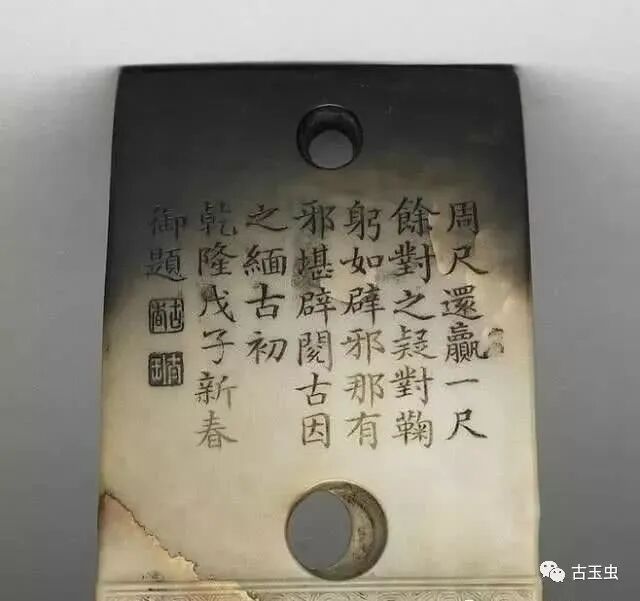 周尺還贏一尺
餘對之疑對鞠
躬如辟邪那有
邪堪辟閱古因
之緬古初
乾隆戊子新春
御題
古玉虫